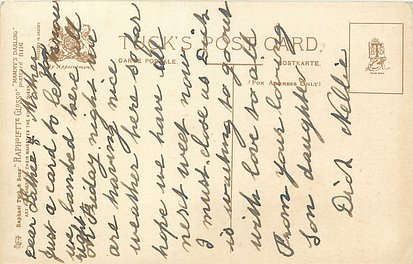 TUCK'S POST CARD.
CARTE POSTALE.
POSTKARTE.
(FOR ADDRESS ONLY)
By Appointment
Raphael Tuck & Sons' "RAPHOLETTE GLOSSO" "MAMMY'S DARLING"
Dear Father & Mother
Just a card to let you know
we landed here all
right on Friday night and
are having nice
weather here so far
hope we have it all
next week now
I must close as Dick
is wanting to go out
with love to all
From your loving
son daughter
Dick Nellie